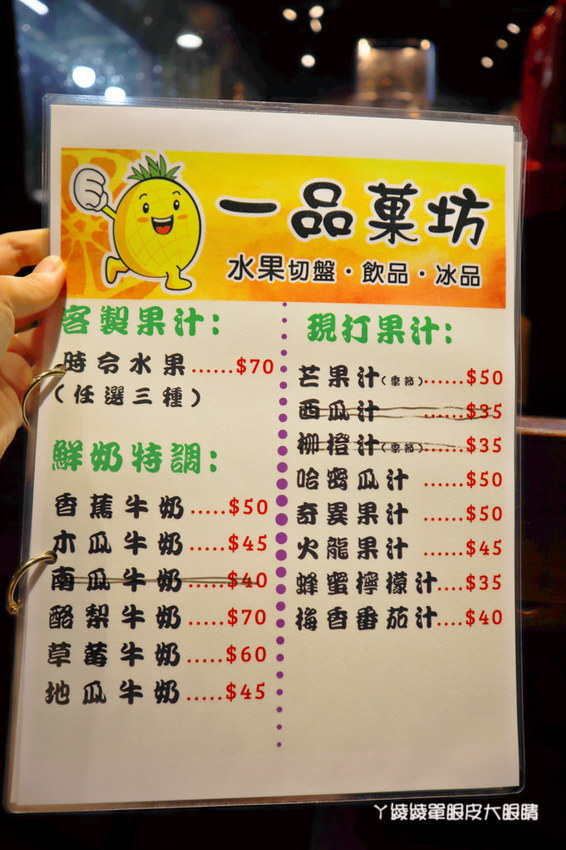 一品菓坊
水果切盤·飲品·冰品
客製果汁:
時令水果......$70
(任選三種)
鮮奶特調:
香蕉牛奶.....$50
木瓜牛奶.....$45
南瓜牛奶.....$40
酪梨牛奶.....$70
草莓牛奶.....$60
地瓜牛奶.....$45
現打果汁:
芒果汁(季節)......$50
西瓜汁......$35
柳橙汁(季節)......$35
哈密瓜汁......$50
奇異果汁......$50
火龍果汁......$45
蜂蜜檸檬汁....$35
梅香番茄汁....$40
ㄚ綾綾單眼皮大眼睛